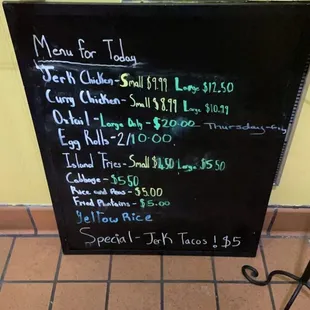 Menu for Today
Jerk Chicken - Small $9.99 Large $12.50
Curry Chicken - Small $8.99 Large $10.99
Oxtail - Large Only - $20.00 - Thursday-
Egg Rolls - 2/10.00
Island Fries - Small $4.50 Large $5.50
Cabbage - $5.50
Rice and Peas - $5.00
Fried Plantains - $5.00
Yellow Rice
Special - Jerk Tacos! $5